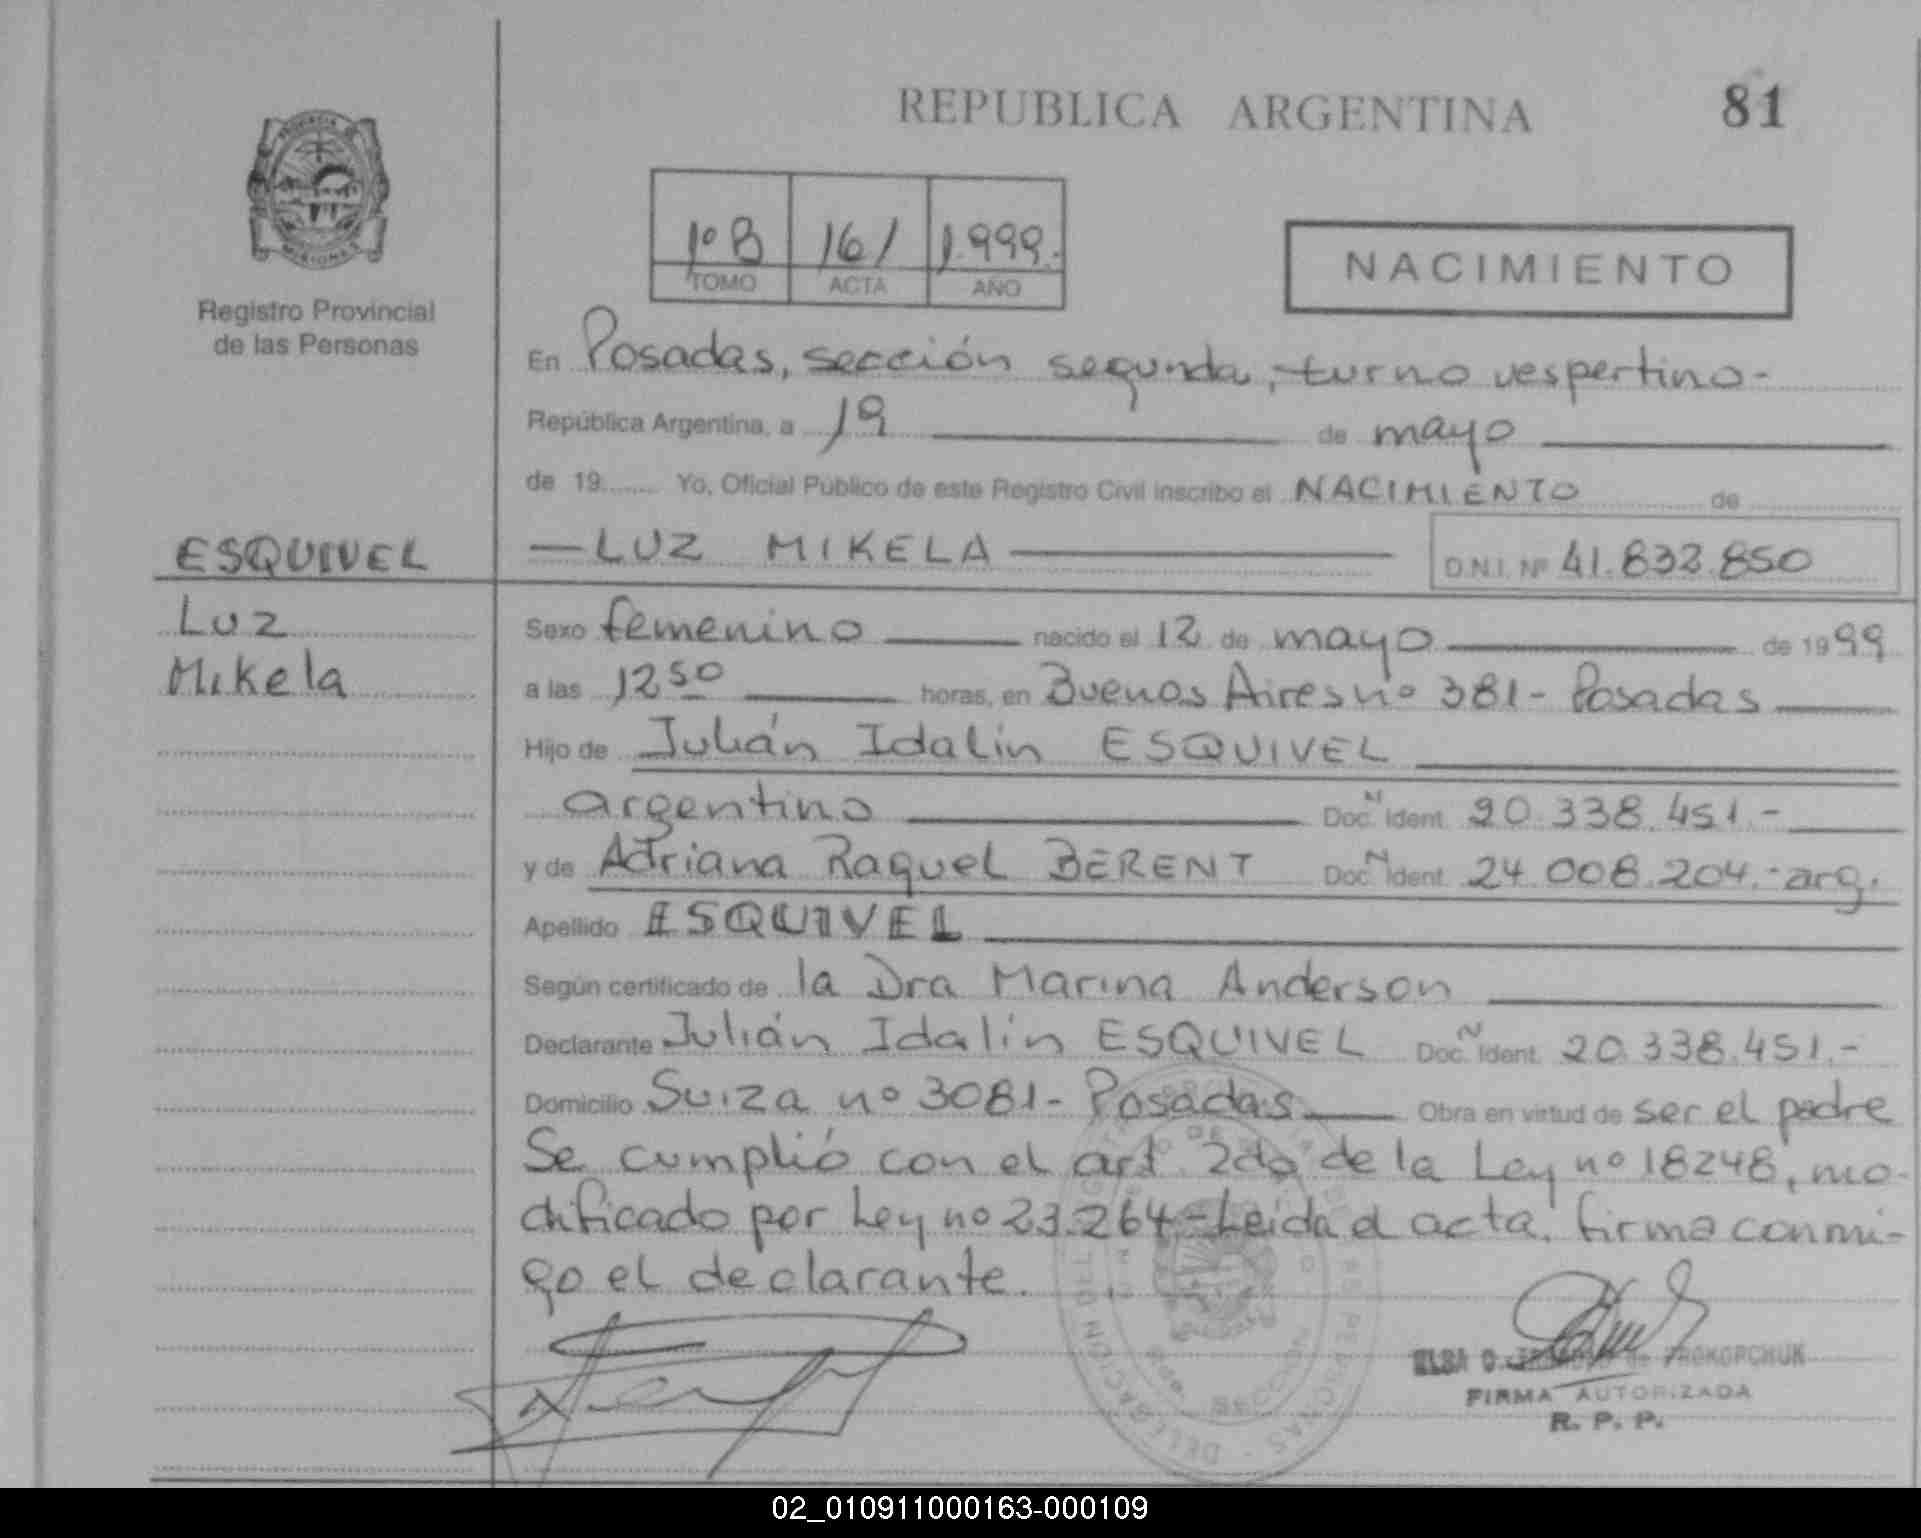 REPUBLICA ARGENTINA
81
PROVINCIA DE
MISIONES
Registro Provincial
de las Personas
1º B 161 1.999.
TOMO ACTA AÑO
NACIMIENTO
En Posadas, sección segunda, turno vespertino-
República Argentina, a 19 de mayo
de 19....... Yo, Oficial Público de este Registro Civil inscribo el NACIMIENTO de
ESQUIVEL
— LUZ MIKELA
D.N.I. Nº 41.832.850
Luz
Mikela
Sexo femenino nacido el 12 de mayo de 1999
a las 12 50 horas, en Buenos Aires nº 381- Posadas
Hijo de Julián Idalin ESQUIVEL
argentino Doc. N Ident. 20.338.451.-
y de Adriana Raquel BERENT Doc. N Ident. 24.008.204.- arg.
Apellido ESQUIVEL
Según certificado de la Dra Marina Anderson
Declarante Julián Idalin ESQUIVEL Doc. N Ident. 20.338.451.-
Domicilio Suiza nº 3081- Posadas Obra en virtud de ser el padre
Se cumplió con el art. 2do de la Ley nº 18248, mo-
dificado por Ley nº 23.264.- Leida el acta, firma conmi-
go el declarante.
ELSA de PROKOPCHUK
FIRMA AUTORIZADA
R. P. P.
02_010911000163-000109